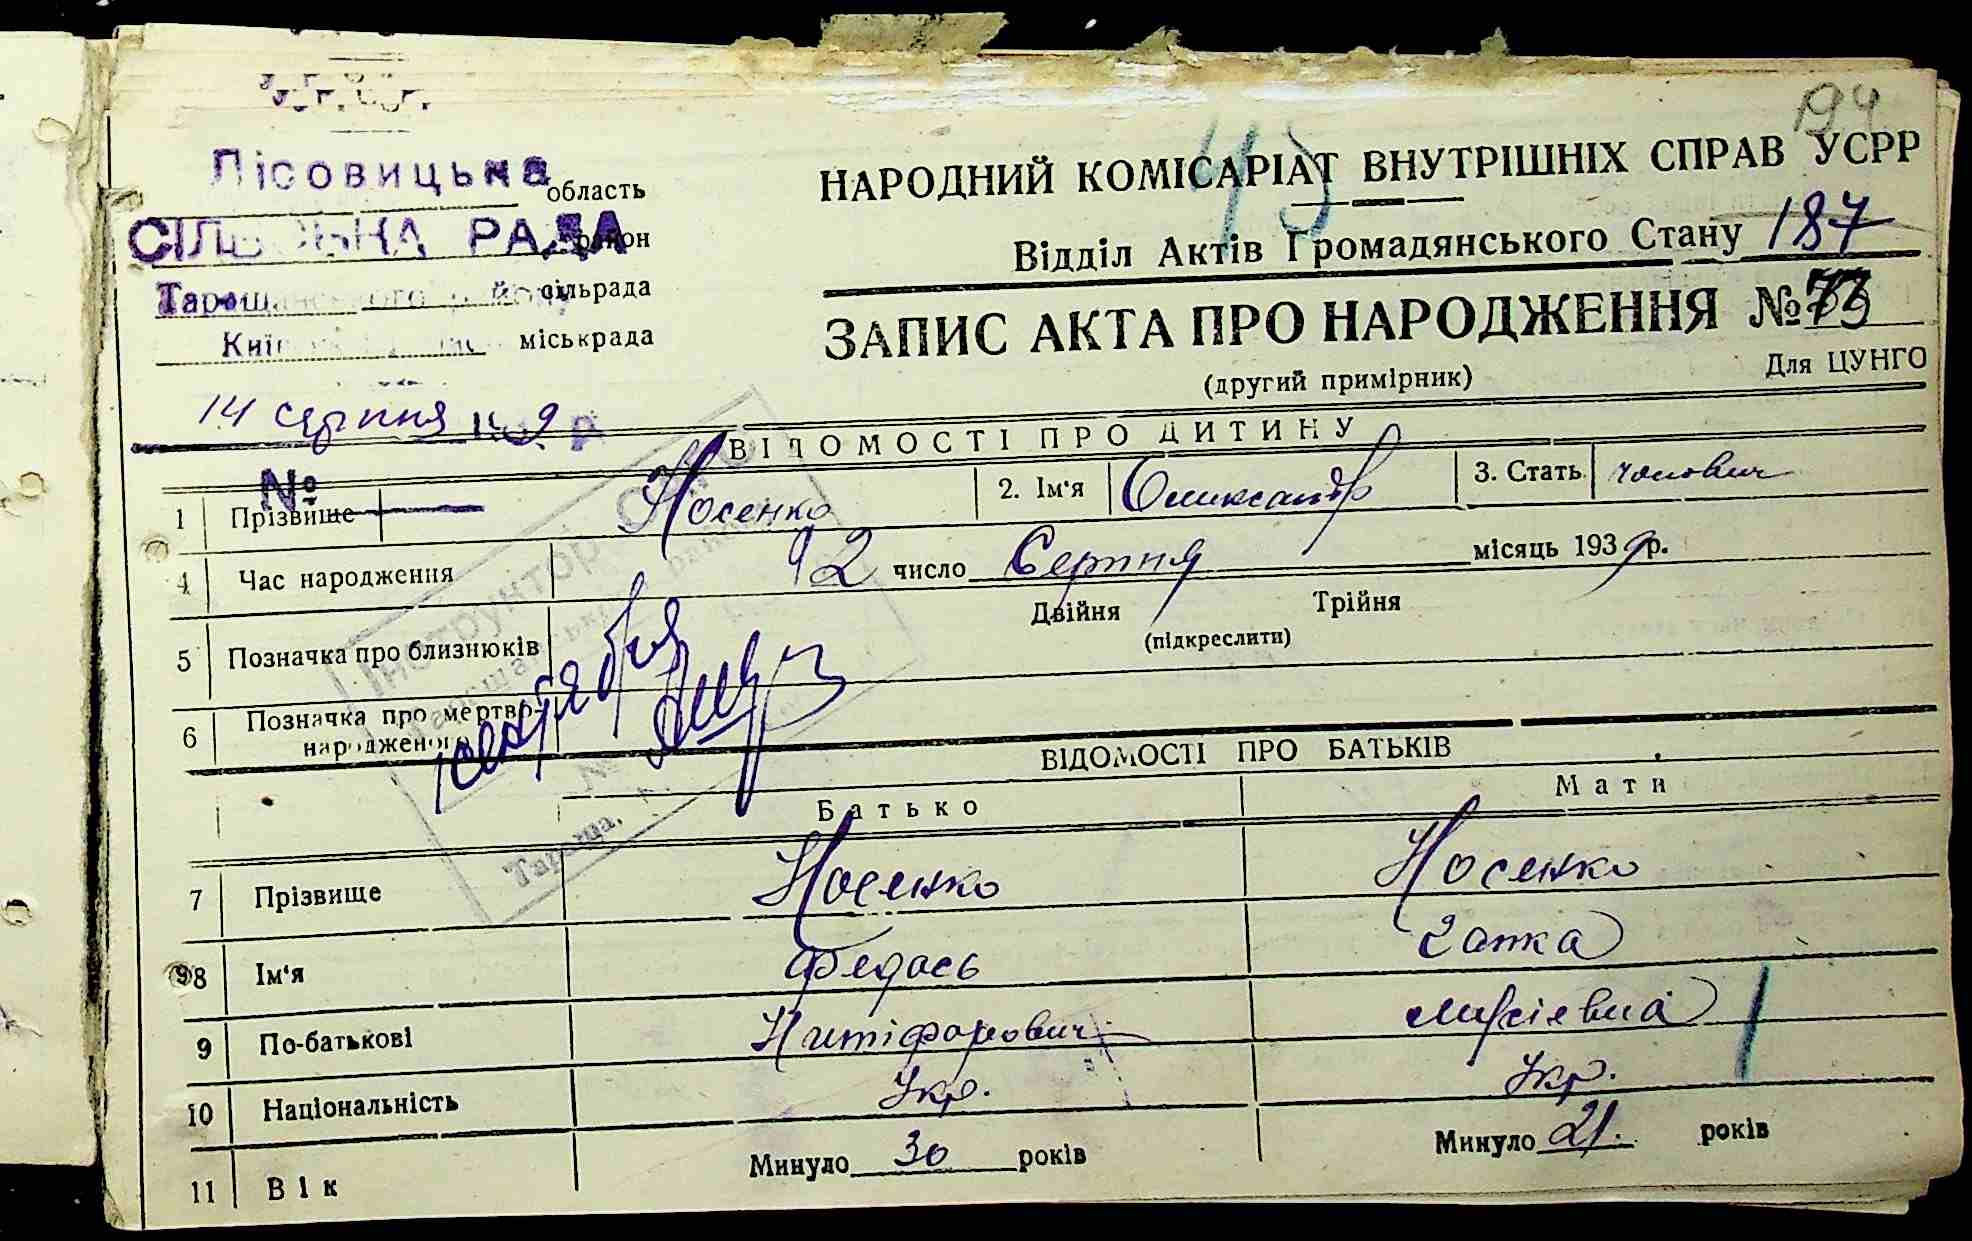 194
Лісовицька область
НАРОДНИЙ КОМІСАРІАТ ВНУТРІШНІХ СПРАВ УСРР
СІЛЬСЬКА РАДА район
45
Відділ Актів Громадянського Стану 187
Таращанського району сільрада
ЗАПИС АКТА ПРО НАРОДЖЕННЯ № 73
міськрада
(другий примірник)
Для ЦУНГО
14 серпня 1939 р
ВІДОМОСТІ ПРО ДИТИНУ
№
1 Прізвище Носенко 2. Ім'я Олександр 3. Стать чолович
4 Час народження 12 число Серпня місяць 1939 р.
5 Позначка про близнюків Двійня Трійня
(підкреслити)
6 Позначка про мертво-
народженого
Інструктор
Тараща,
ВІДОМОСТІ ПРО БАТЬКІВ
Батько Мати
7 Прізвище Носенко Носенко
8 Ім'я Федось
9 По-батькові Нитіфорович
10 Національність Укр. Укр.
11 Вік Минуло 30 років Минуло 21. років